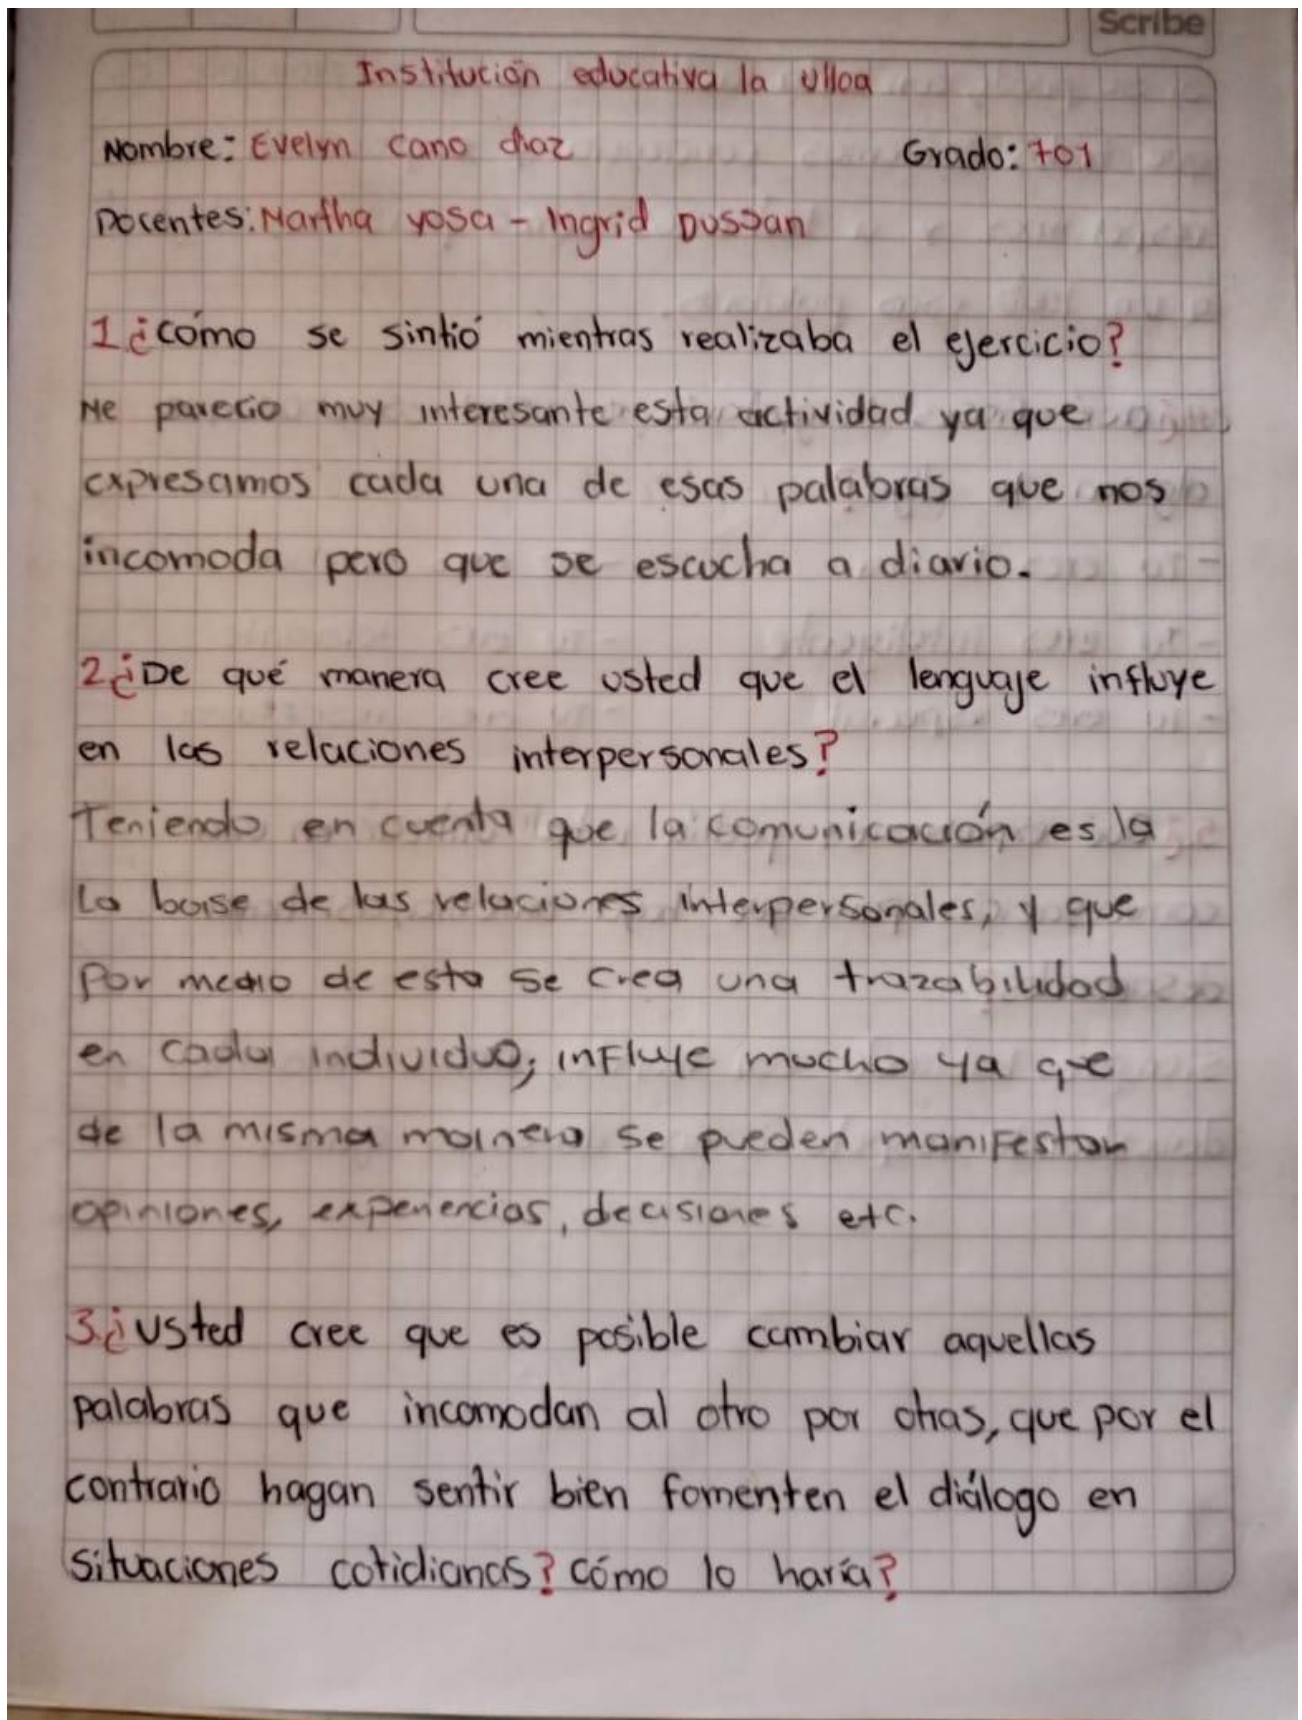 Scribe
Institución educativa la Ulloa
Nombre: Evelyn Cano diaz Grado: 701
Docentes: Martha yosa - Ingrid Dussan
1 ¿cómo se sintió mientras realizaba el ejercicio?
Me parecio muy interesante esta actividad ya que
expresamos cada una de esas palabras que nos
incomoda pero que se escucha a diario.
2 ¿De qué manera cree usted que el lenguaje influye
en las relaciones interpersonales?
Teniendo en cuenta que la comunicación es la
la base de las relaciones interpersonales, y que
por medio de esta se crea una trazabilidad
en cada individuo; influye mucho ya que
de la misma manera se pueden manifestar
opiniones, experiencias, decisiones etc.
3. ¿usted cree que es posible cambiar aquellas
palabras que incomodan al otro por otras, que por el
contrario hagan sentir bien fomenten el diálogo en
situaciones cotidianas? cómo lo haría?